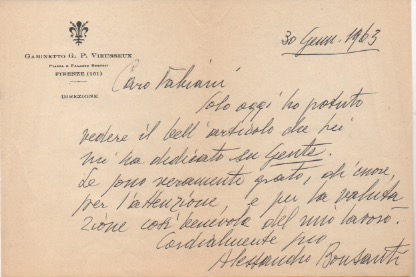 GABINETTO G. P. VIEUSSEUX
PIAZZA E PALAZZO STROZZI
FIRENZE (101)
DIREZIONE
30 Genn. 1963
Caro Fabiani
solo oggi ho potuto
vedere il bell'articolo che lei
mi ha dedicato su Gente.
Le sono veramente grato, di cuore,
per l'attenzione, e per la valuta
zione così benevola del mio lavoro.
Cordialmente suo
Alessandro Bonsanti